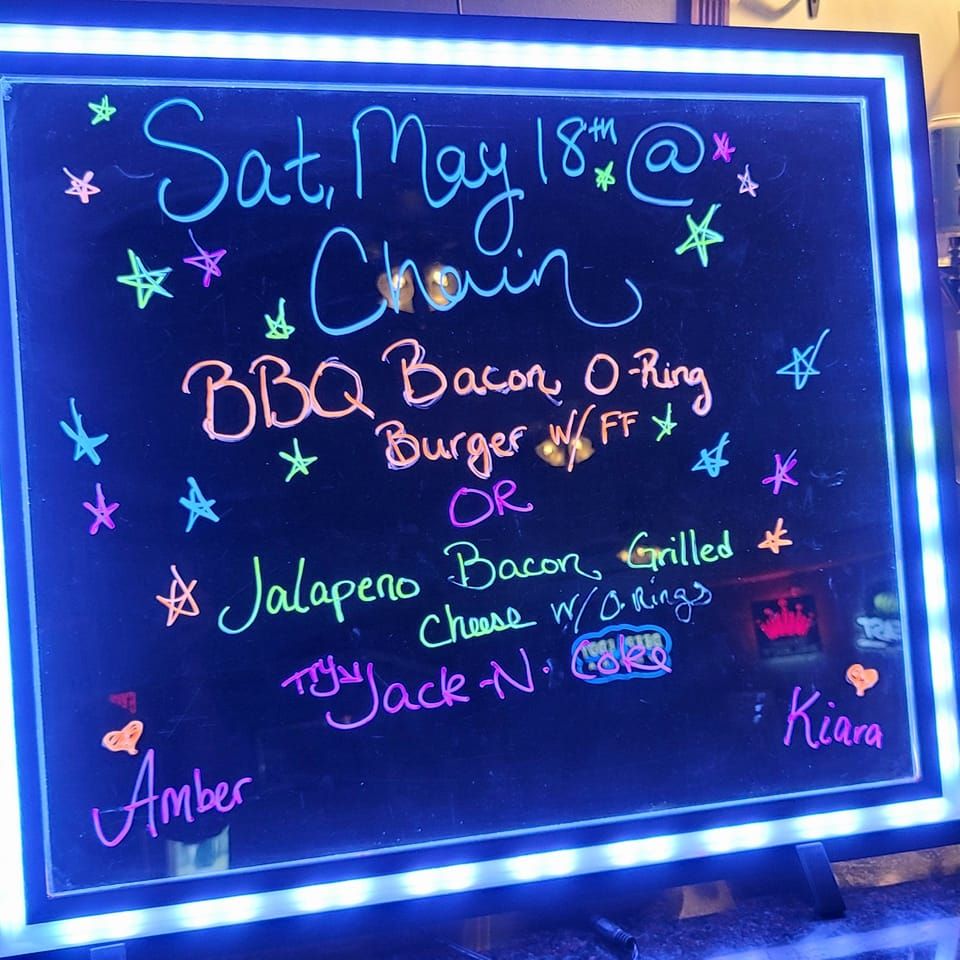 Sat, May 18th @
Chain
BBQ Bacon O-Ring
Burger w/ FF
OR
Jalapeno Bacon Grilled
Cheese w/ O.Rings
Try Jack-N. Coke
Amber
Kiara